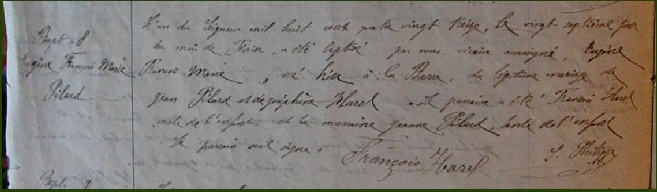 Bapt. 8
Eugène François Marie
Pilard
L'an du Seigneur mil huit cent quatre vingt seize, le vingt septième jour
du mois de Février, a été baptisé par nous, vicaire soussigné, Eugène
François Marie, né hier à la du légitime mariage de
Jean Pilard et de Joséphine Harel. Le parrain a été François Harel
oncle de l'enfant et la marraine Jeanne Pilard, tante de l'enfant
Le parrain seul signe.
François Harel